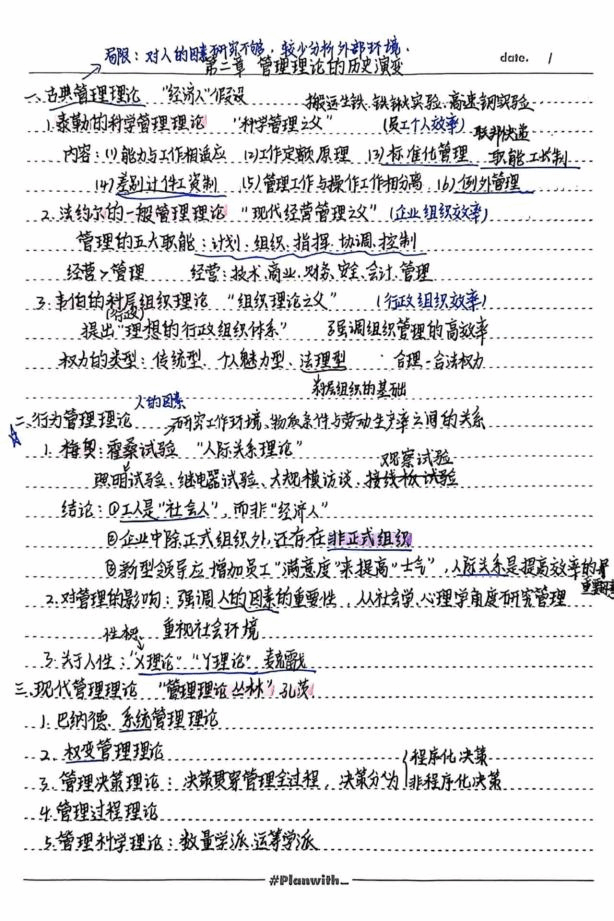 局限：对人的因素研究不够，较少分析外部环境.
第二章 管理理论的历史演变
date. /
一、古典管理理论 "经济人"假设
搬运生铁、铁锹实验、高速钢实验
1.泰勒的科学管理理论 "科学管理之父" (员工个人效率)
内容：(1)能力与工作相适应 (2)工作定额原理 (3)标准化管理 职能工长制
(4)差别计件工资制 (5)管理工作与操作工作相分离 (6)例外管理
2.法约尔的一般管理理论 "现代经营管理之父" (企业组织效率)
管理的五大职能：计划、组织、指挥、协调、控制
经营>管理 经营：技术、商业、财务、安全、会计、管理
3.韦伯的科层组织理论 "组织理论之父" (行政组织效率)
(行政)
提出"理想的行政组织体系" 强调组织管理的高效率
权力的类型：传统型、个人魅力型、法理型 合理-合法权力
科层组织的基础
人的因素
二、行为管理理论 研究工作环境、物质条件与劳动生产率之间的关系
1.梅奥：霍桑试验 "人际关系理论"
观察试验
照明试验、继电器试验、大规模访谈、接线板试验
结论：①工人是"社会人"，而非"经济人"
②企业中除正式组织外，还存在非正式组织
③新型领导应增加员工"满意度"来提高"士气"，人际关系是提高效率的
重要因素
2.对管理的影响：强调人的因素的重要性，从社会学、心理学角度研究管理
重视社会环境
3.关于人性："X理论""Y理论" 麦格雷戈
三、现代管理理论 "管理理论丛林" 孔茨
1.巴纳德、系统管理理论
2.权变管理理论
程序化决策
3.管理决策理论：决策贯穿管理全过程，决策分为 非程序化决策
4.管理过程理论
5.管理科学理论：数量学派、运筹学派
#Planwith_